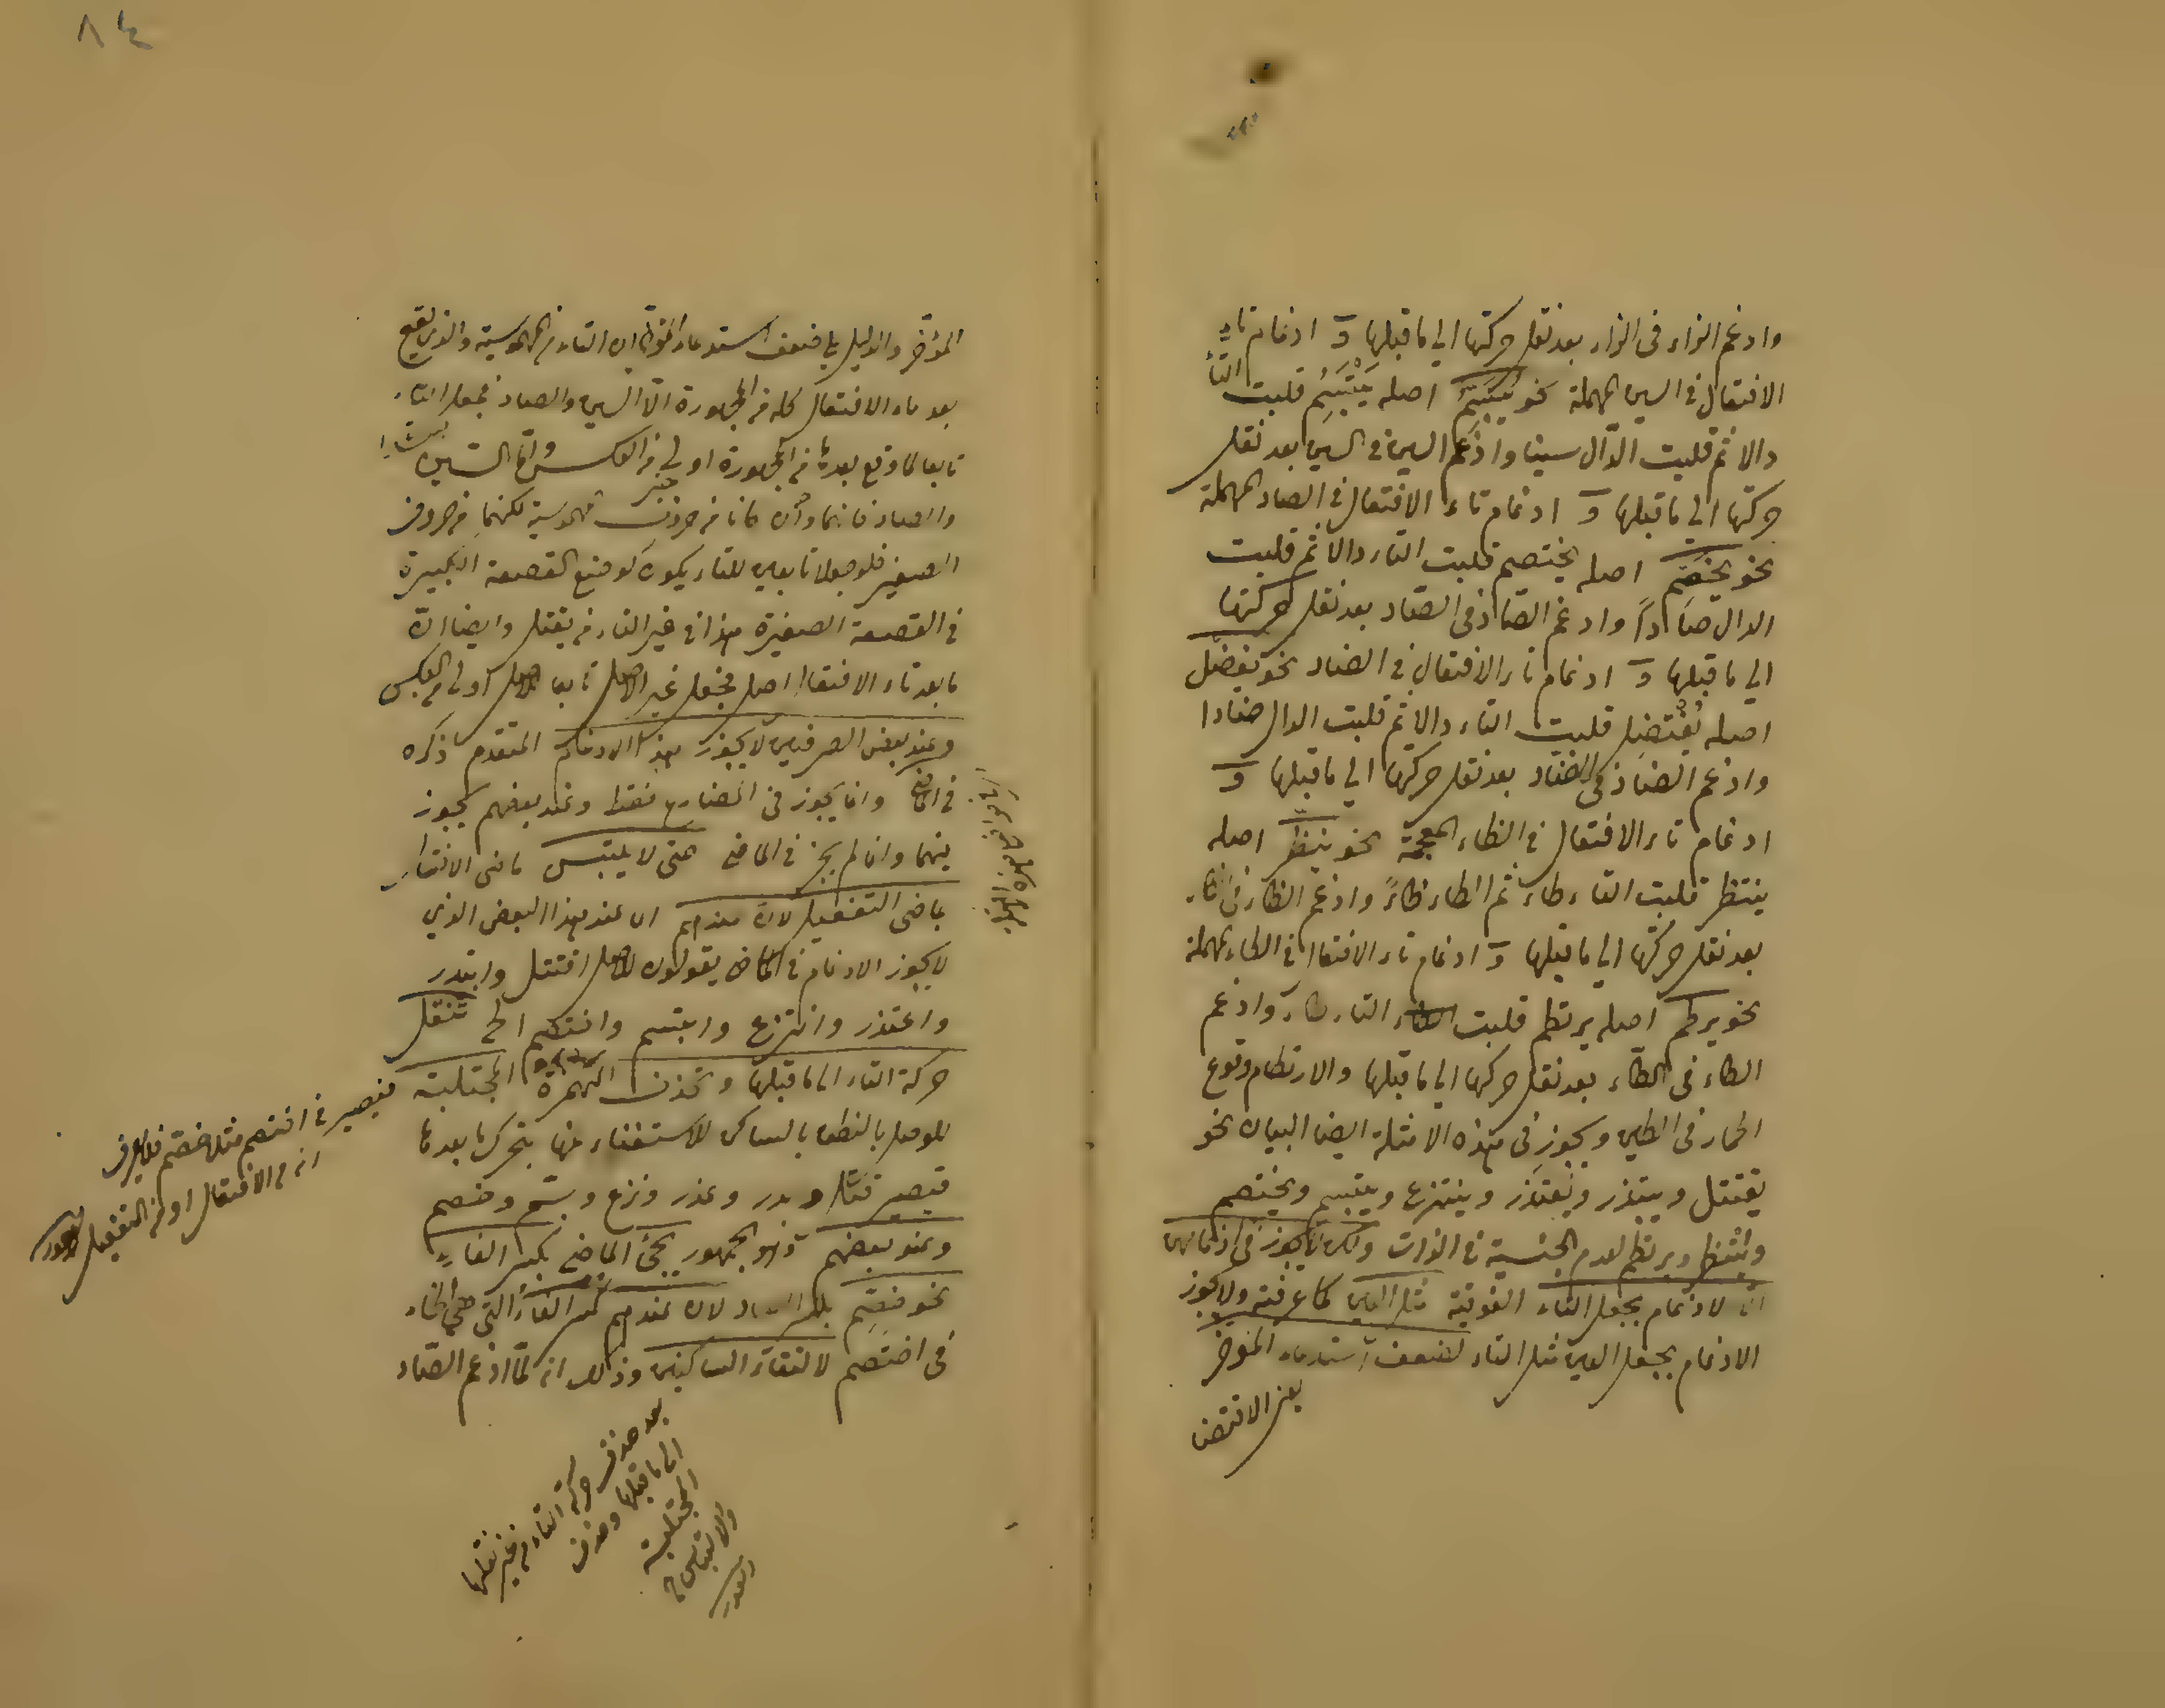 وادغم الزاء فى الزاء بعد نقل حركتها الي ما قبلها و ادغام تاء
الافتعال فى السين المهملة نحو يَبَسِّمُ اصله يَبْتَسِمُ قلبت التاء
دالا ثم قلبت الدّال سينا وادغم السين فى السين بعد نقل
حركتها الي ما قبلها و ادغام تاء الافتعال فى الصاد المهملة
نحو يخصّم اصله يختصم قلبت التاء دالا ثم قلبت
الدال صَادًا وادغم الصّاد فى الصّاد بعد نقل حركتها
الي ما قبلها و ادغام تاء الافتعال فى الضاد نحو يفضّل
اصله يفتضل قلبت التاء دالا ثم قلبت الدال ضادا
وادغم الضاد فى الضّاد بعد نقل حركتها الي ما قبلها و
ادغام تاء الافتعال فى الظاء المعجمة نحو ينظّر اصله
ينتظر قلبت التاء طاء ثم الطاء ظاءً وادغم الظاء فى الظاء
بعد نقل حركتها الي ما قبلها و ادغام تاء الافتعال فى الطاء المهملة
نحو يرطّم اصله يرتطم قلبت التاء طاء وادغم
الطاء فى الطّاء بعد نقل حركتها الي ما قبلها والارتطام وقوع
الحمار فى الطين ويجوز فى هذه الامثلة ايضا البيان نحو
يقتتل ويبتذر ويعتذر وينتزع ويبتسم ويختصم
وينتظر ويرتطم لعدم الجنسية فى الذات ولكن لا يجوز فى ادغامهن
الا الادغام بجعل التاء الفوقية مثل العين كما عرفته ولا يجوز
الادغام بجعل العين مثل التاء لضعف استدعاء المؤخر
يعنى الاقتضا
المؤخر والدليل على ضعف استدعاء المؤخر ان التاء من المهموسية والذى يقع
بعد تاء الافتعال كله من المجهورة الّا السين والصاد فجعل التاء
تابعا لما وقع بعدها من المجهورة اولي من العكس وامّا السّين
والصاد فانهما وان كانا من حروف مهموسية لكنهما من حروف
الصفير فلو جعلا تابعين للتاء يكون كوضع القصعة الكبيرة
فى القصعة الصغيرة هذا فى غير التاء من يقتتل وايضا انّ
ما بعد تاء الافتعال اصل فجعل غير الاصل تابعا للاصل اولي من العكس
وعند بعض الصرفيين لا يجوز هذا الادغام المتقدم ذكره
فى الماضى وانما يجوز فى المضارع فقط وعند بعضهم يجوز
فيهما وانما لم يجز فى الماضى حتى لا يلتبس ماضى الافتعال
بماضى التفعيل لانّ عندهم اى عند هذا البعض الذي
لا يجوز الادغام فى الماضى يقولون لاصل اقتتل وابتدر
واعتذر وانتزع وابتسم واختصم الخ تنقل
حركة التاء الى ما قبلها وتحذف الهمزة المجتلبة
للوصل بالنطق بالساكن للاستغناء عنها بتحرك ما بعدها
فتصير قتّل وبدر وعذر ونزع وبسّم وخصم
وعند بعضهم وهو الجمهور يجئ الماضى بكسر الفاء
نحو خِصّم بكسر الخاء لان عندهم كسر الفاء التى هى الخاء
فى اختصم لالتقاء الساكنين وذلك انه لمّا ادغم الصّاد
فيصير فى اختصم مثلا خصّم فلا يعرف
انه من الافتعال او من التفعيل
بعد حذف حركة التاء من غير نقلها
الى ما قبلها وحذف
المجتلبة